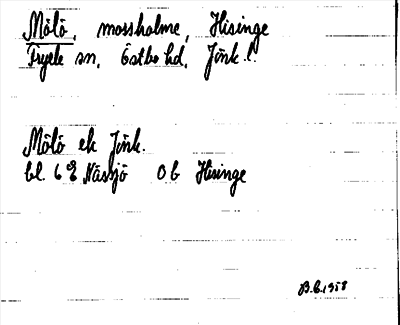 Mölö, mossholme, Hisinge
Tryele sn, Östbo hd, Jönk. l.
Mölö ek Jönk.
bl. 68 Nässjö Ob Hisinge
B.G. 1958